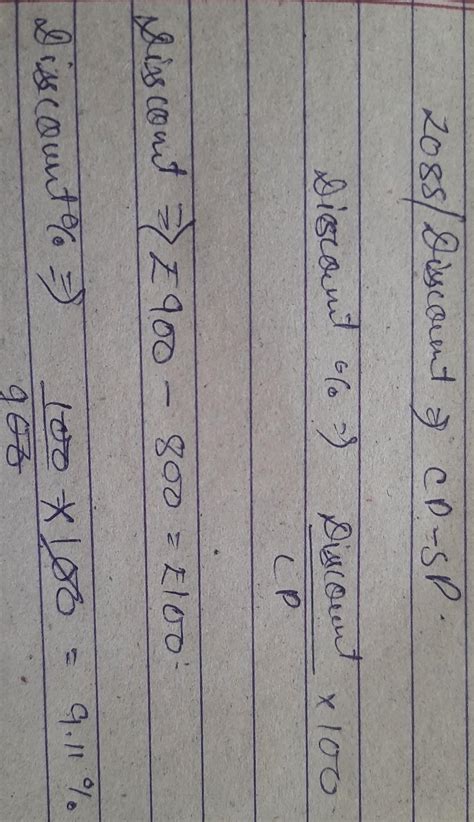 Loss/Disscount ⇒ CP-SP.
Disscount % ⇒ Disscount / CP × 100
Disscount ⇒ £900 - 800 = £100.
Disscount% ⇒ 100 / 900 × 100 = 9.11 %